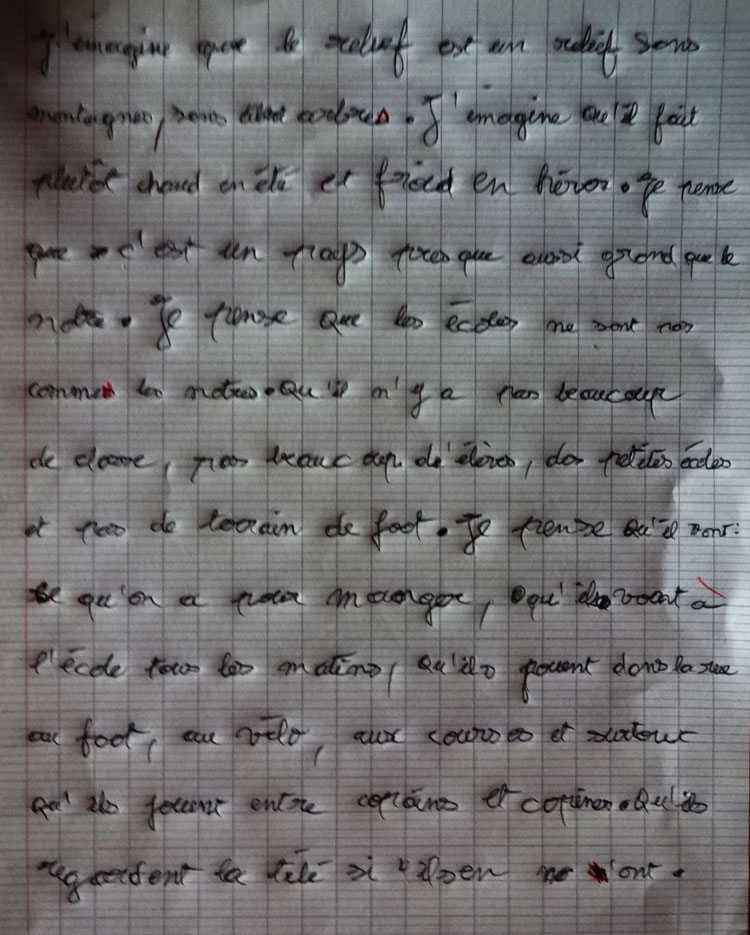 J'imagine que le relief est un relief sans
montagnes, sans arbres. J'imagine qu'il fait
plutôt chaud en été et froid en hiver. Je pense
que c'est un pays presque aussi grand que le
notre. Je pense que les écoles ne sont pas
comme les notres. Qu'il n'y a pas beaucoup
de classe, pas beaucoup d'élèves, des petites écoles
et pas de terrain de foot. Je pense qu'il
qu'on a pour manger, qu'ils vont à
l'école tous les matins, qu'ils jouent dans la rue
au foot, au vélo, aux courses et surtout
qu'ils jouent entre copains et copines. Qu'ils
regardent la télé si ils en ont.